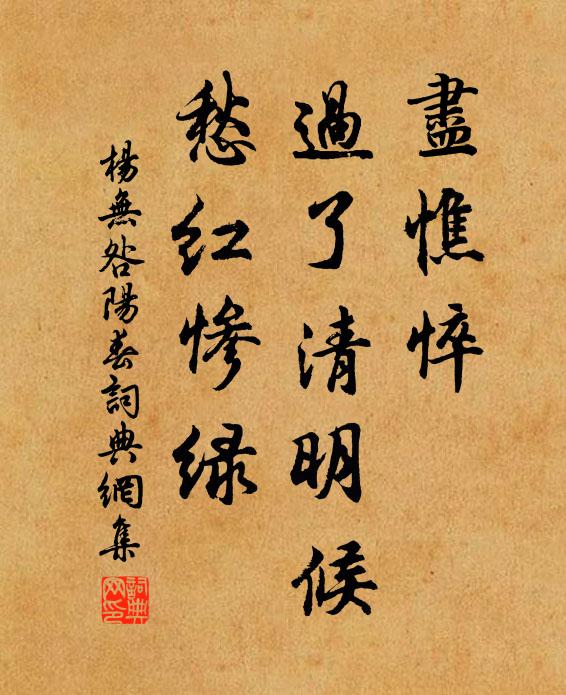 盡憔悴
過了清明候
愁紅慘緑
楊無咎陽春詞典網集
詞典
网印